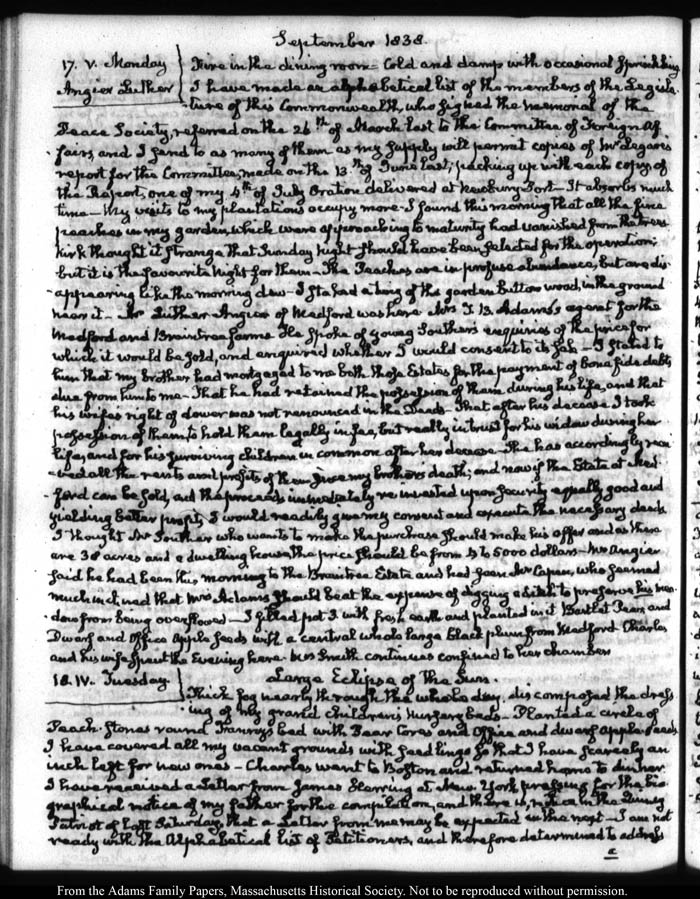 September 1838.
17. V. Monday
Angier Luther
Fire in the dining room – Cold and damp with occasional Sprinkling
I have made an alphabetical list of the members of the Legisla-
ture of this Commonwealth, who signed the memorial of the
Peace Society, referred on the 26th of March last to the Committee of Foreign Af-
fairs, and I send to as many of them as my supply will permit copies of Mr Legare's
report for the Committee, made on the 13th of June last; packing up with each copy of
the Report, one of my 4th of July Oration delivered at Newbury Port – It absorbs much
time – My visits to my plantations occupy more – I found this morning that all the fine
peaches in my garden, which were approaching to maturity had vanished from the trees
Kirk thought it strange that Sunday Night should have been selected for the operation;
but it is the favourite Night for them – The Peaches are in profuse abundance, but are dis-
appearing like the morning dew – I staked a twig of the garden button wood, in the ground
near it – Mr Luther Angier of Medford was here Mrs T. B. Adams's agent for the
Medford and Braintree farms He spoke of young Souther's enquiries of the price for
which it would be sold, and enquired whether I would consent to its sale – I stated to
him that my brother had mortgaged to me both those Estates for the payment of bona fide debts
due from him to me – That he had retained the possession of them during his life, and that
his wife's right of dower was not renounced in the Deeds – That after his decease I took
possession of them, to hold them legally in fee, but really in trust for his widow during her
life, and for his surviving children in common after her decease – She has accordingly recei-
ved all the rents and profits of them since my brother's death; and now if the Estate at Med-
ford can be sold, and the proceeds immediately re invested upon security equally good and
yielding better profit, I would readily give my consent and execute the necessary deeds
I thought Mr Souther who wants to make the purchase should make his offer and as there
are 30 acres and a dwelling house, the price should be from 4 to 5000 dollars – Mr Angier
said he had been this morning to the Braintree Estate and had seen Mr Capen, who seemed
much inclined that Mrs Adams should bear the expense of digging a ditch to preserve his mea-
dow from being overflowed – I filled pot 3 with fresh earth and planted in it Bartlet Pear, and
Dwarf and Office Apple seeds with a central whole large black plum from Medford Charles
and his wife spent the Evening here Mrs Smith continues confined to her chamber
18. IV. Tuesday
Large Eclipse of the Sun.
Thick fog nearly through the whole day discomposed the dress-
ing of my grand children's nursery beds – Planted a circle of
Peach stones round Fanny's bed with Pear Cores and Office and dwarf apple seeds
I have covered all my vacant grounds with seedlings so that I have scarcely an
inch left for new ones – Charles went to Boston and returned home to dinner
I have received a Letter from James Herring at New York pressing for the bio-
graphical notice of my father for the compilation, and there is notice in the Quincy
Patriot of last Saturday, that a Letter from me may be expected in the next – I am not
ready with the Alphabetical list of Petitioners, and therefore determined to address
a
From the Adams Family Papers, Massachusetts Historical Society. Not to be reproduced without permission.